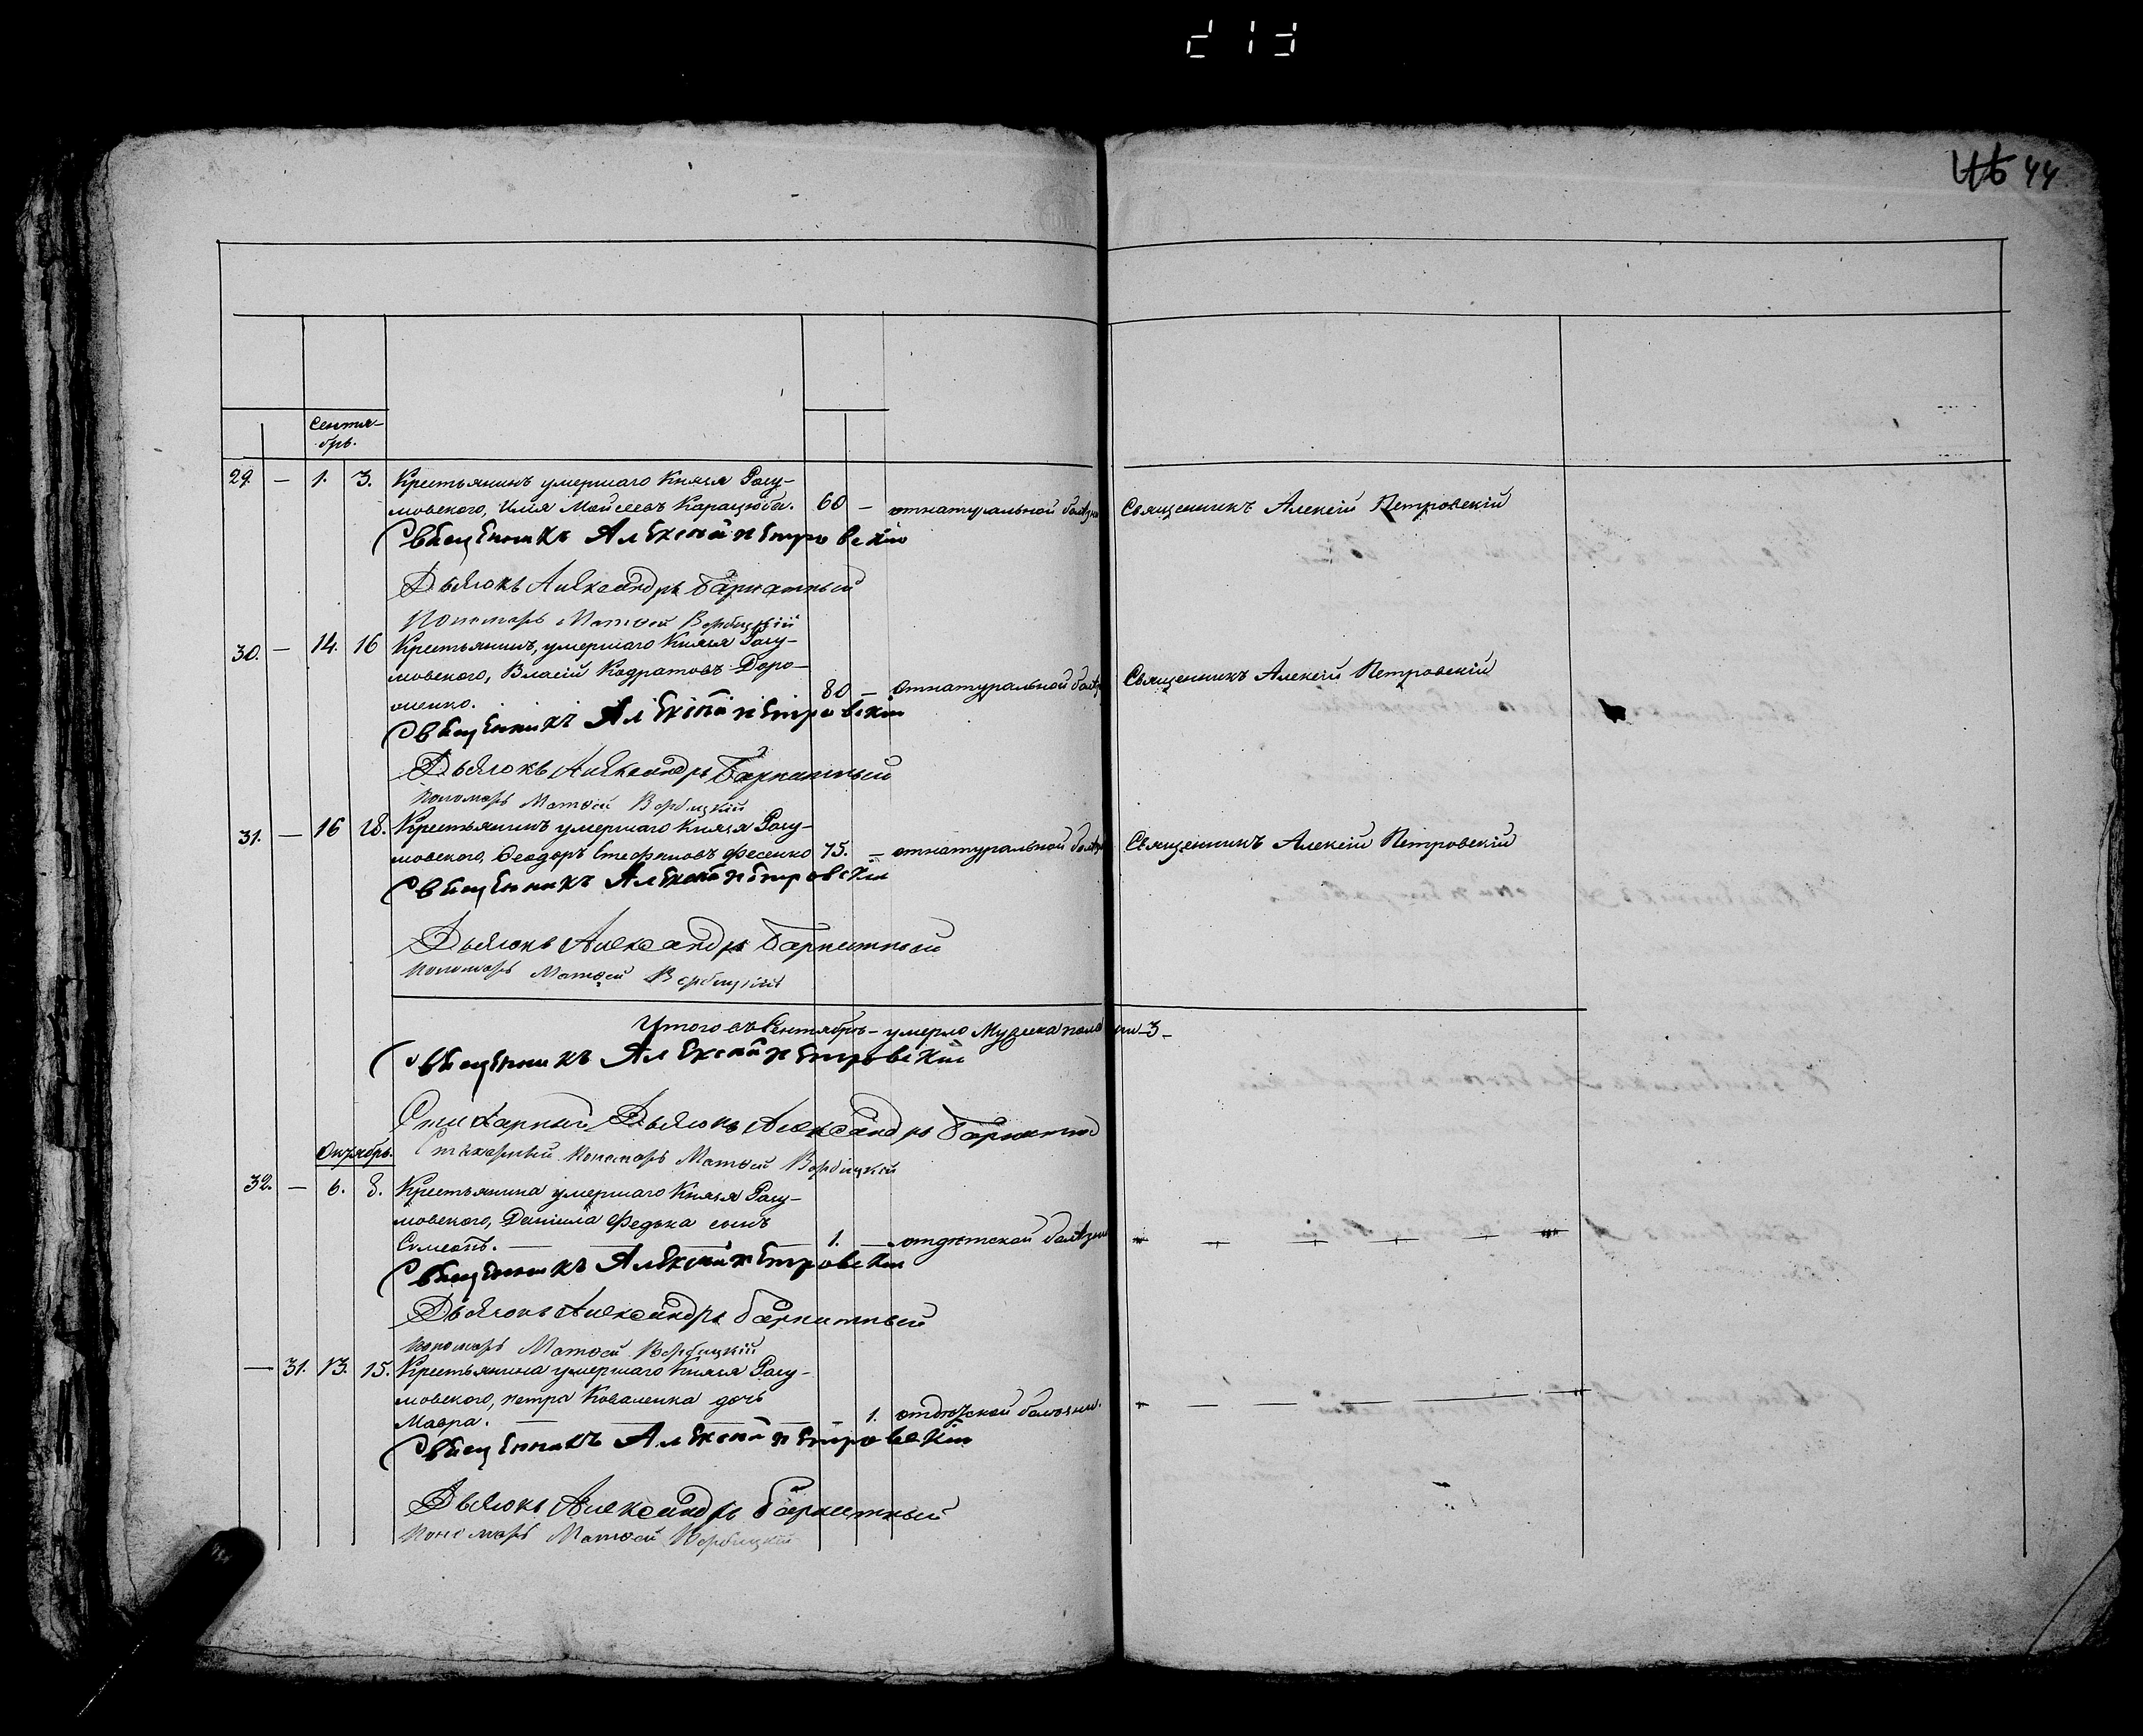 44
Сентя-
брь.
29. — 1. 3. Крестьянинъ умершаго Князя Разу-
мовскаго, Илія Мойсеевъ Карацюба. 60 — отнатуральной болѣзни Священникъ Алексій Петровскій
Священникъ Алексій Петровскій
Дьячокъ Александръ Бархатный
Пономарь Матѳей Вербицкій
30. — 14. 16 Крестьянинъ, умершаго Князя Разу-
мовскаго, Власій Кодратовъ Доро-
шенко. 80 — отнатуральной болѣз Священникъ Алексій Петровскій
Священникъ Алексій Петровскій
Дьячокъ Александръ Бархатный
Пономарь Матѳей Вербицкій
31. — 16 18. Крестьянинъ умершаго Князя Разу-
мовскаго, Ѳеодоръ Стефановъ Фесенко 75. — отнатуральной болѣз Священникъ Алексій Петровскій
Священникъ Алексій Петровскій
Дьячокъ Александръ Бархатный
Пономарь Матѳей Вербицкій
Итого въ Сентябрѣ — умерло Мужеска пола — 3 —
Священникъ Алексій Петровскій
Стихарный Дьячокъ Александръ Бархатный
Стихарный Пономарь Матѳей Вербицкій
Октябрь.
32. — 6. 8. Крестьянина умершаго Князя Разу-
мовскаго, Даніила Федька сынъ
Симеонъ. — 1. — отдѣтской болѣзни
Священникъ Алексій Петровскій
Дьячокъ Александръ Бархатный
Пономарь Матѳей Вербицкій
— 31. 13. 15. Крестьянина умершаго Князя Разу-
мовскаго, Петра Коваленка дочь
Мавра. — 1. отдѣтской болѣзни.
Священникъ Алексій Петровскій
Дьячокъ Александръ Бархатный
Пономарь Матѳей Вербицкій